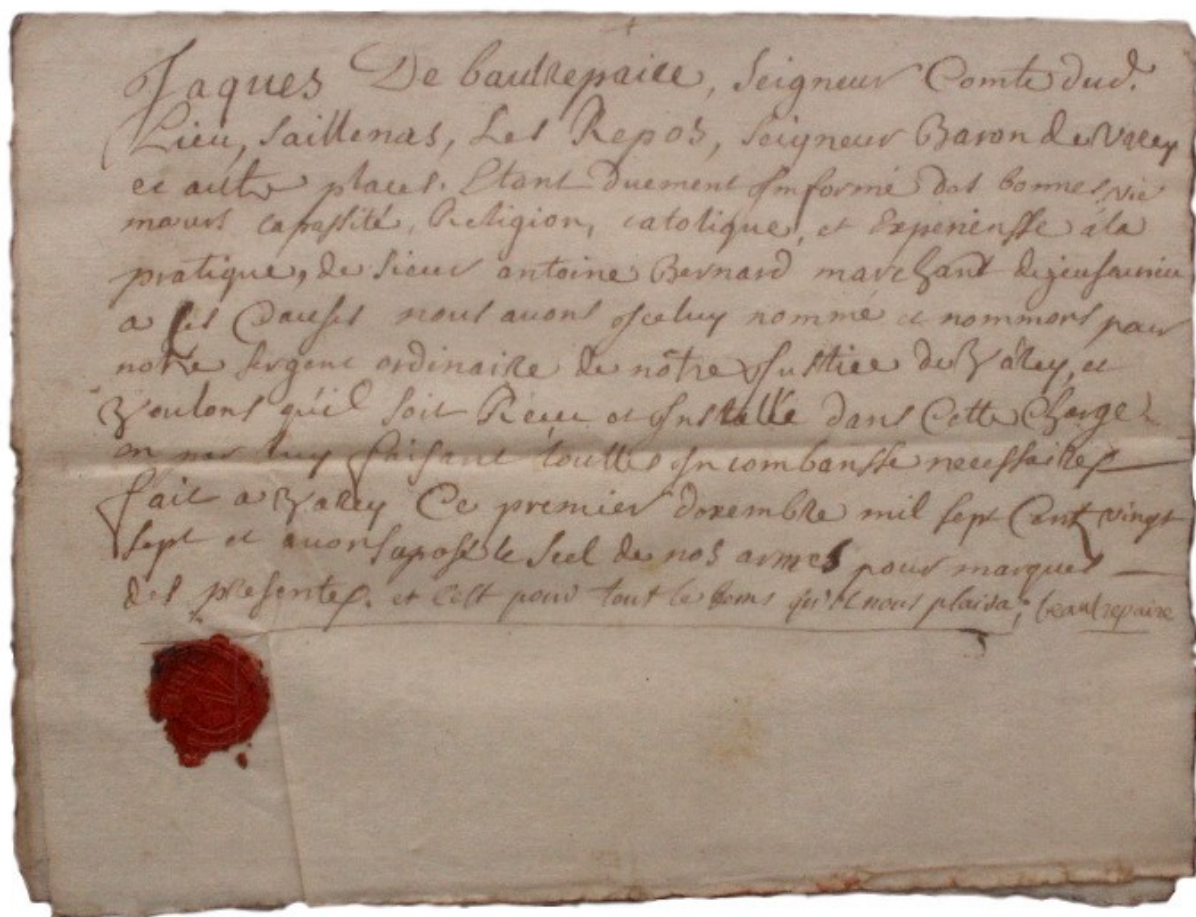 Jaques De bautrepaire, Seigneur Comte dud.
Lieu, Saillenas, Les Repos, Seigneur Baron de Varey
et autre places. Etant duement Informé des bonnes vie
mœurs capassité, Religion, catolique, et Experiensse a la
pratique, de sieur antoine Bernard marchant de
a ses Causes nous avons Iceluy nommé et nommons pour
notre sergent ordinaire de nôtre Justice de Varey, et
Voulons qu'il soit Réçeu et Installé dans Cette Charge
en par luy faisant touttes Incombansse necessaires
fait a Varey Ce premier dexembre mil sept Cent vingt
sept et avons aposé le seel de nos armes pour marques
des presentes. et cest pour tout le tems qu'il nous plaira; beautrepaire